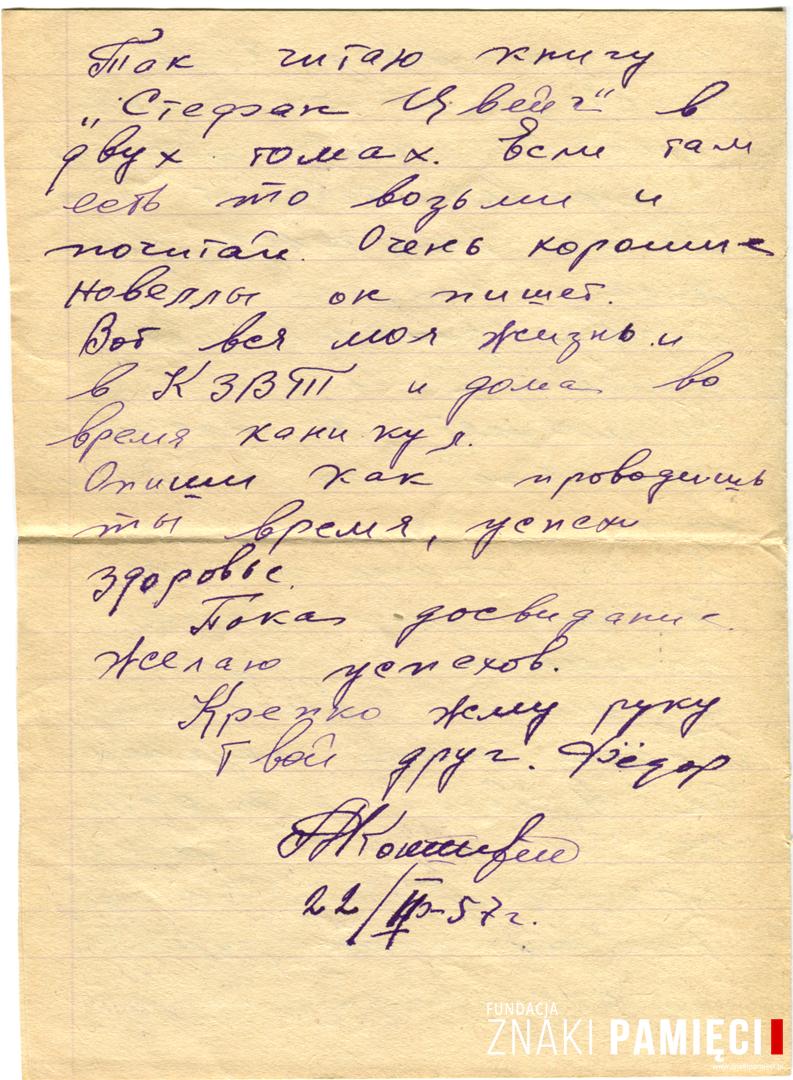 Так читаю книгу
„Стефан Цвейг" в
двух томах. Если там
есть то возьми и
почитай. Очень хорошие
новеллы он пишет.
Вот вся моя жизнь и
в КЗВТ и дома во
время каникул.
Опиши как проводишь
ты время, успехи
здоровье.
Пока досвидание
желаю успехов.
Крепко жму руку
Твой друг. Фёдор
22/II-57г.
FUNDACJA
ZNAKI PAMIĘCI
www.znakipamieci.pl